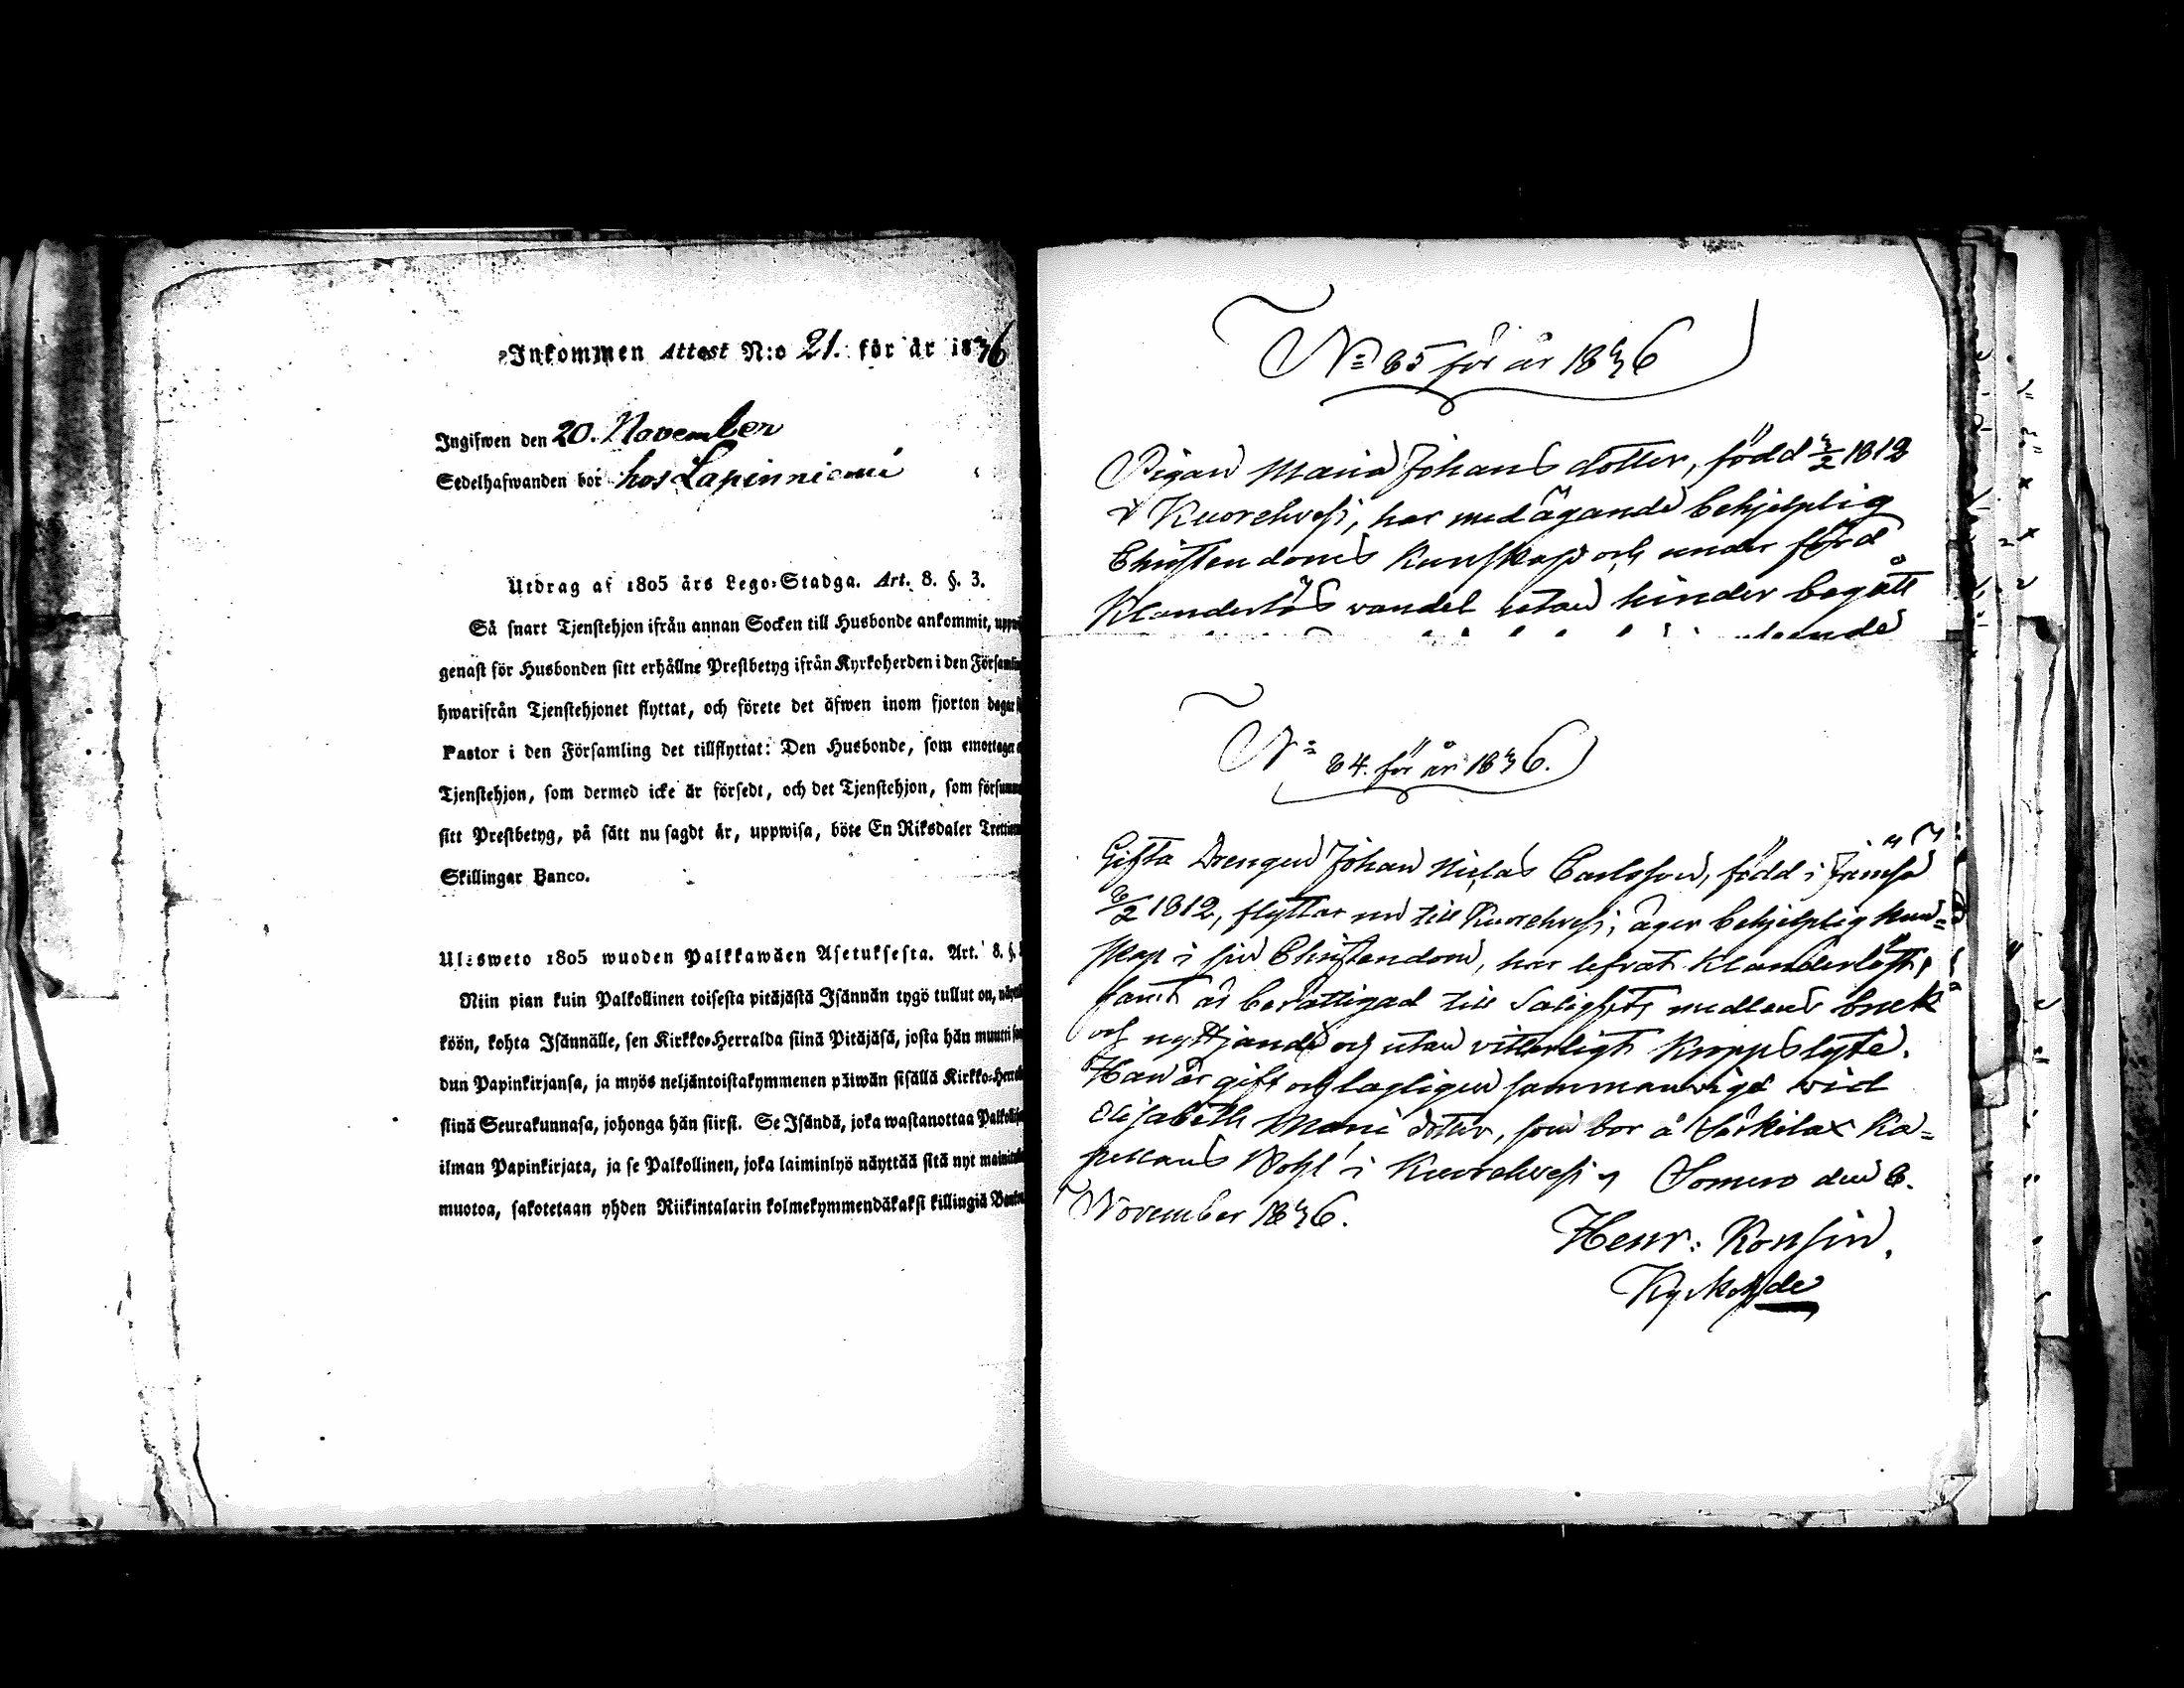 Inkommen Attest N:o 21. för år 1836
Ingifwen den 20. November
Sedelhafwanden bor hos Lapinniemi
Utdrag af 1805 års Lego-Stadga. Art. 8. §. 3.
Så snart Tjenstehjon ifrån annan Socken till Husbonde ankommit,
genast för Husbonden sitt erhållne Prestbetyg ifrån Kyrkoherden i den
hwarifrån Tjenstehjonet flyttat, och förete det äfwen inom fjorton dagar
Pastor i den Församling det tillflyttat: Den Husbonde, som emottager
Tjenstehjon, som dermed icke är försedt, och det Tjenstehjon, som
sitt Prestbetyg, på sätt nu sagdt är, uppwisa, böte En Riksdaler
Skillingar Banco.
Ulosweto 1805 wuoden Palkkawäen Asetuksesta. Art. 8. §.
Niin pian kuin Palkollinen toisesta pitäjästä Isännän tygö tullut on,
köön, kohta Isännälle, sen Kirkko-Herralda siinä Pitäjäsä, josta hän muutti
dun Papinkirjansa, ja myös neljäntoistakymmenen päiwän sisällä
siinä Seurakunnasa, johonga hän siirst. Se Isändä, joka wastanottaa
ilman Papinkirjata, ja se Palkollinen, joka laiminlyö näyttää sitä nyt
muotoa, sakotetaan yhden Riikintalarin kolmekymmendäkaksi killingiä
N= 85 för år 1836
Pigan Maria Johans dotter, född 3/2 1812
i Kuorehvesi, har med ägande behjelplig
Christendoms Kunskap och under förd
Klanderlös vandel utan hinder begått
N= 84. för år 1836.
Gifta Drengen Johan Niclas Carlsson, född i Jämsä
8/2 1812, flyttar nu till Kuorehvesi; äger behjelplig kun=
skap i sin Christendom, har lefvat Klanderlöst,
samt är berättigad till Salighets medlens bruk
och nyttjande och utan vitterligt Kroppslyte.
Han är gift och lagligen sammanvigd wid
Elisabeth Mari dotter, som bor å Särkilax Ka=
pellans Bohl i Kuorehvesi. Somero den 8.
November 1836.
Henr: Konsin.